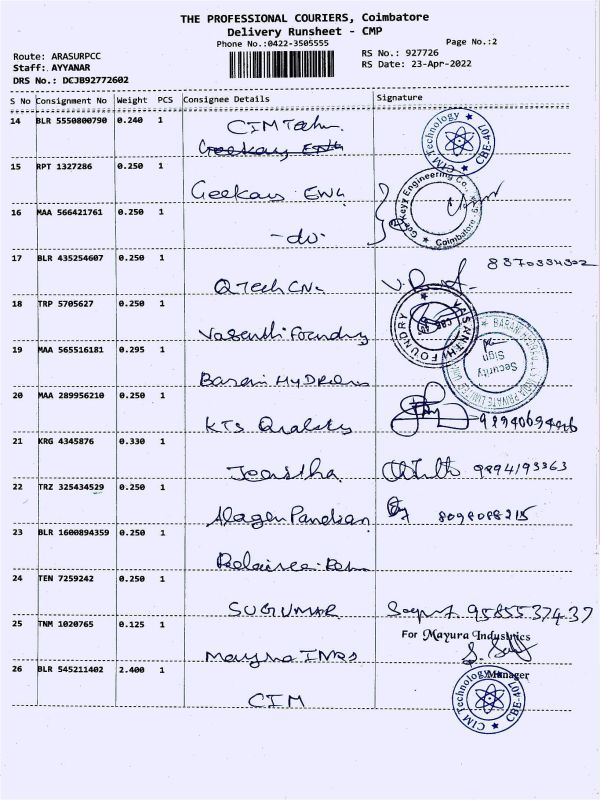 THE PROFESSIONAL COURIERS, Coimbatore
Delivery Runsheet - CMP
Phone No.:0422-3505555
Page No.:2
Route: ARASURPCC
RS No.: 927726
Staff: AYYANAR
RS Date: 23-Apr-2022
DRS No.: DCJB92772602
S No Consignment No Weight PCS Consignee Details Signature
14 BLR 5550800790 0.240 1
CIM Tech
CIM Technology ★ CBE-407 ★
15 RPT 1327286 0.250 1
Geekay ENG
Engineering Co., Coimbatore
16 MAA 566421761 0.250 1
-do-
17 BLR 435254607 0.250 1
Q Tech CNC
18 TRP 5705627 0.250 1
Vasanth Foundry
VASANTHI FOUNDRY
19 MAA 565516181 0.295 1
Barani Hydraulics
Security
Sign
20 MAA 289956210 0.250 1
KTS Quality
21 KRG 4345876 0.330 1
9894193363
22 TRZ 325434529 0.250 1
Alagu Pandian
8098098215
23 BLR 1600894359 0.250 1
24 TEN 7259242 0.250 1
SUGUMAR
9585537437
25 TNM 1020765 0.125 1
For Mayura Industries
Manager
26 BLR 545211402 2.400 1
CIM
CIM Technology ★ CBE-407 ★